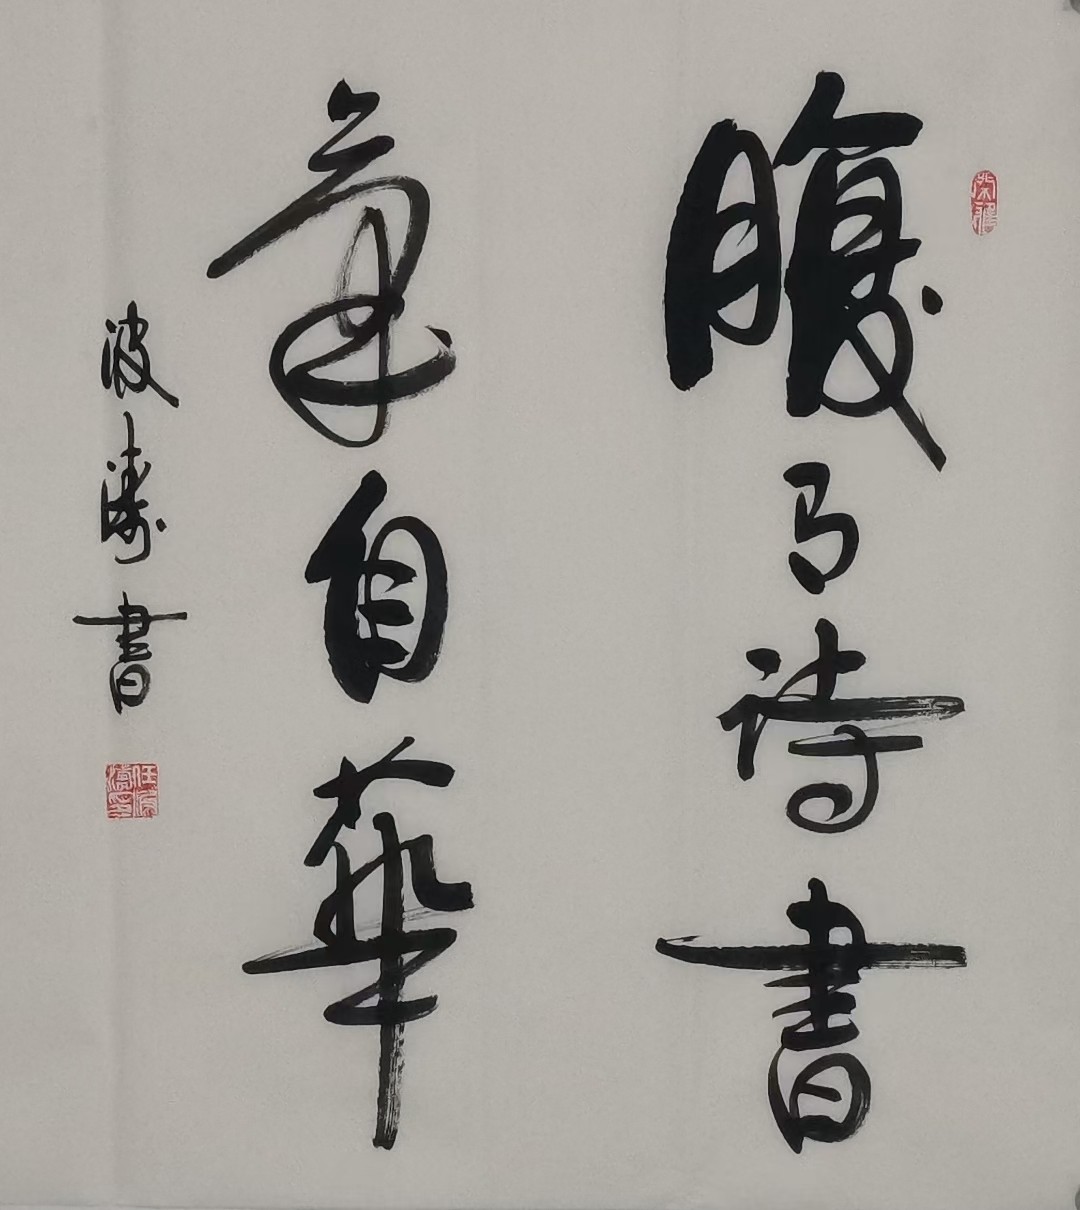 腹有诗書
氣自華
波濤書